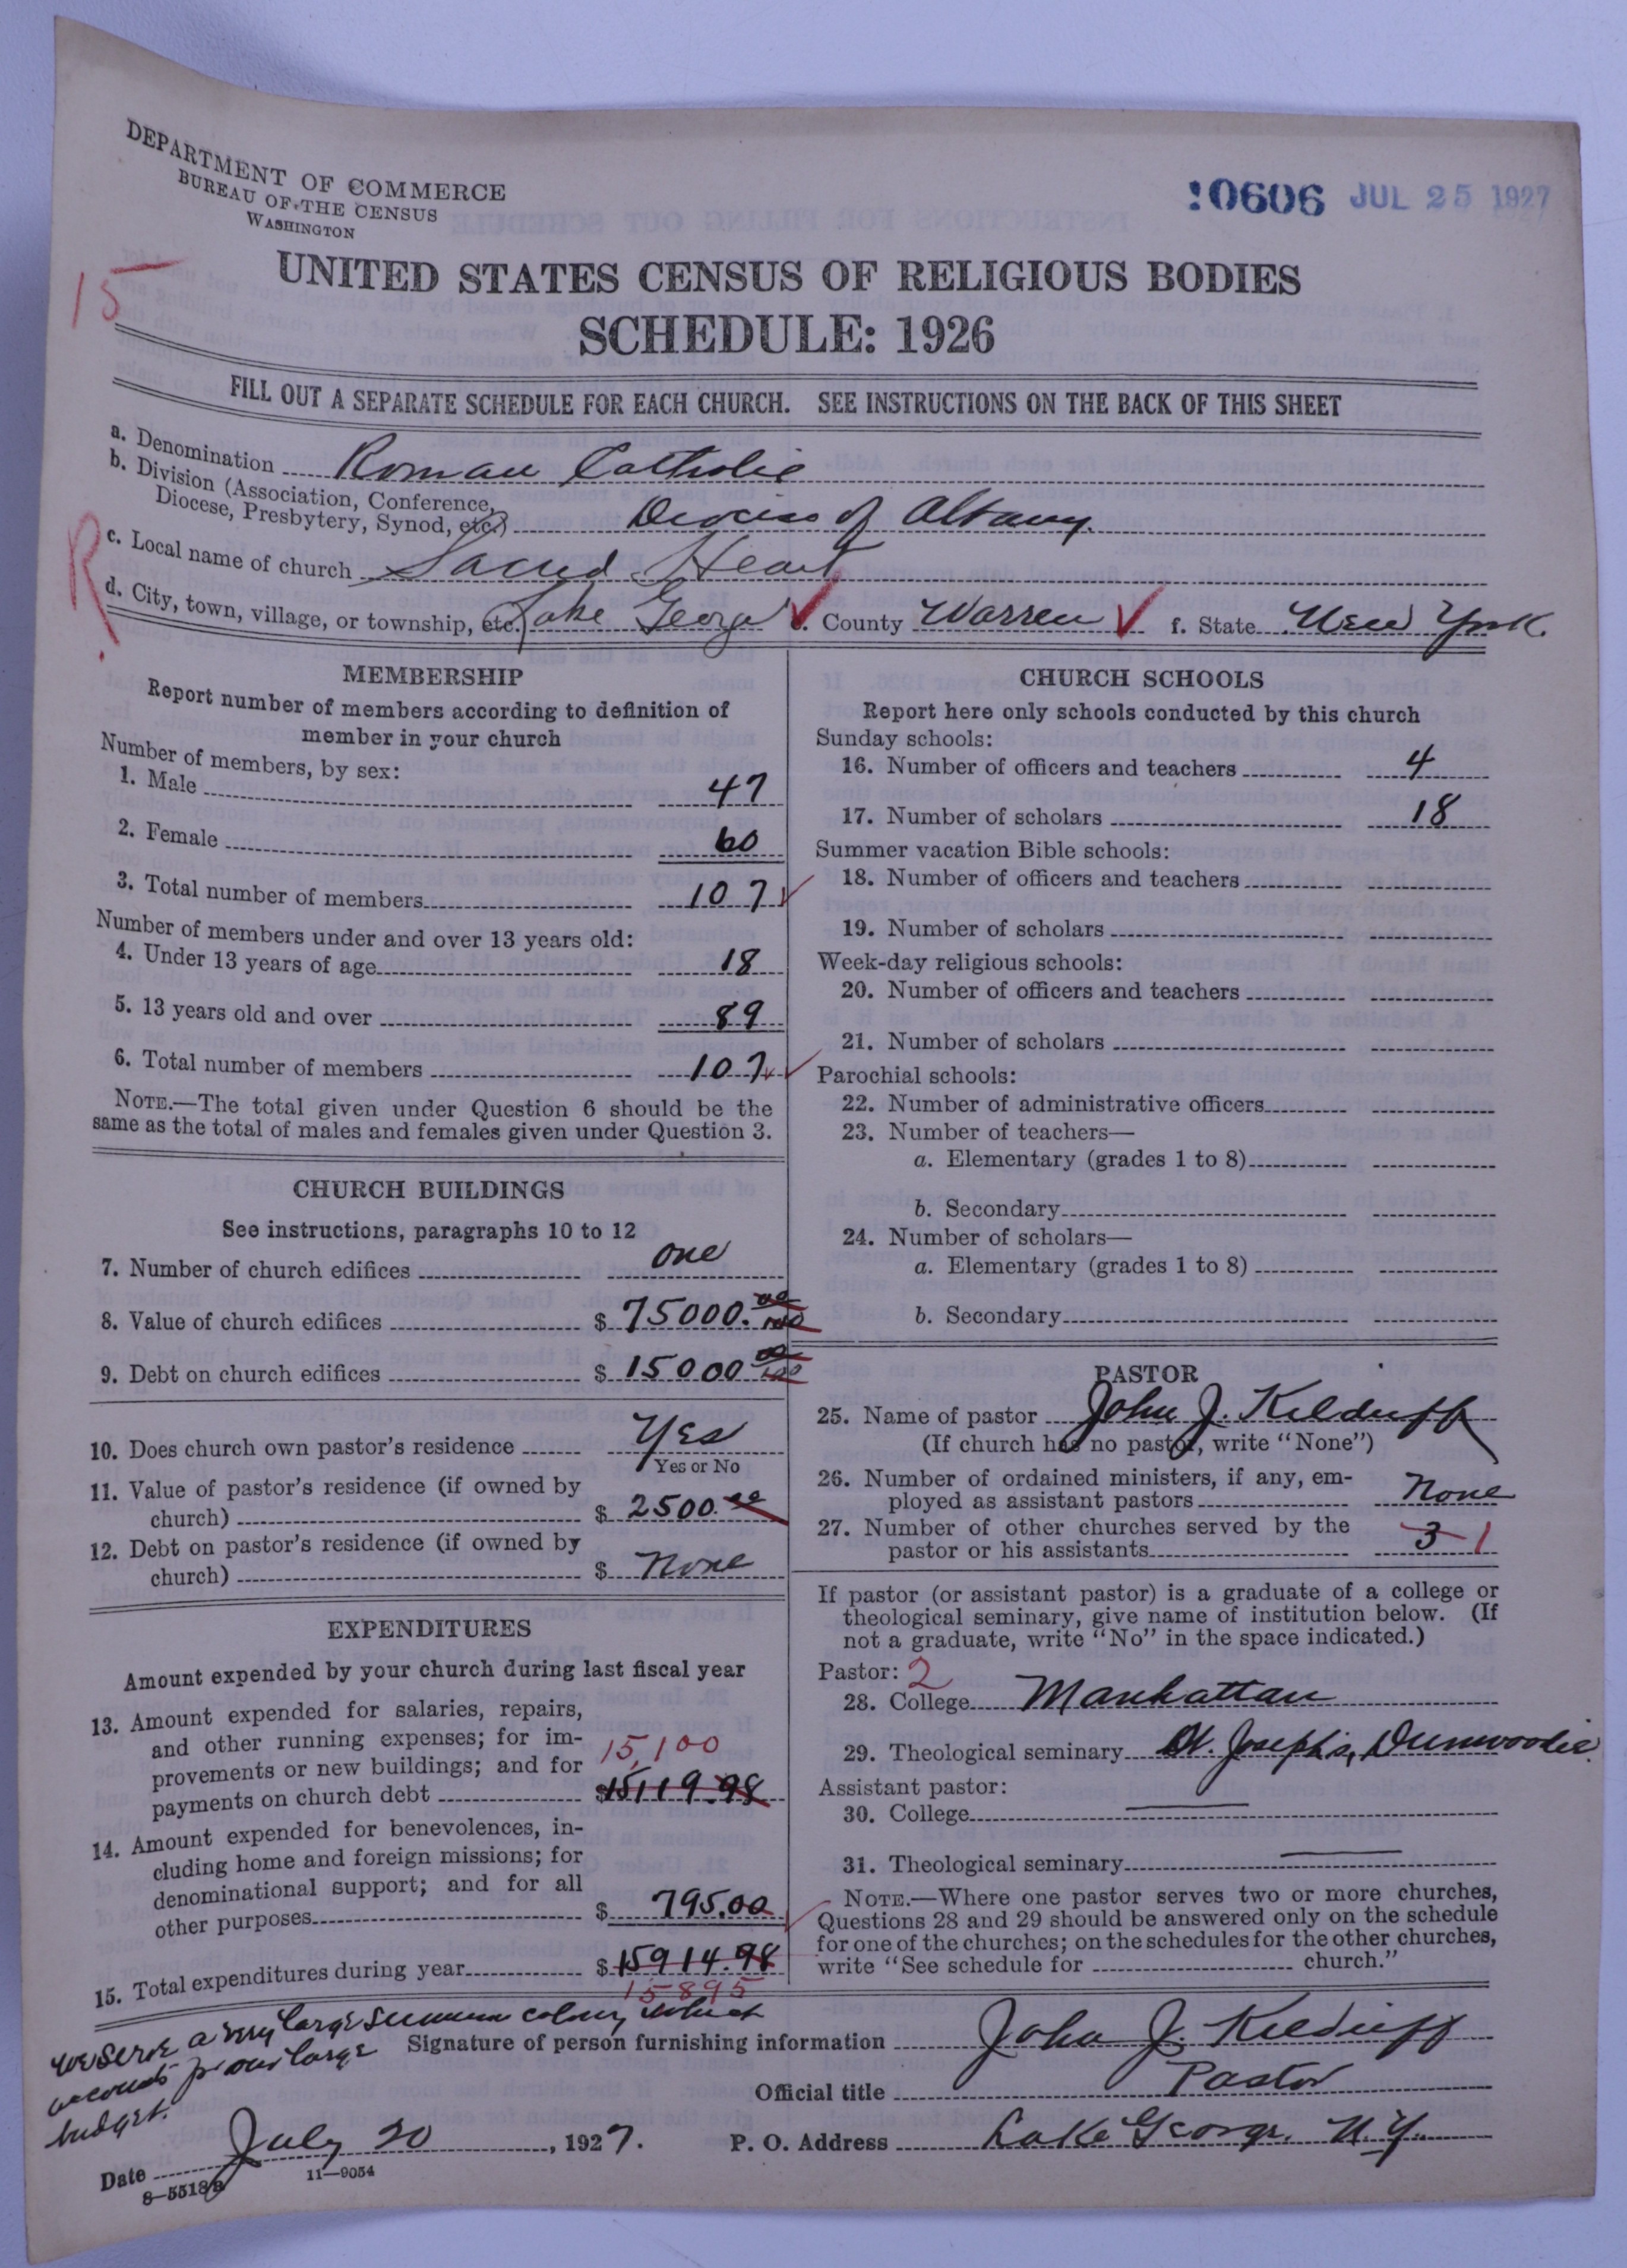 DEPARTMENT OF COMMERCE
BUREAU OF THE CENSUS
WASHINGTON
10606 JUL 25 1927
15
UNITED STATES CENSUS OF RELIGIOUS BODIES
SCHEDULE: 1926
FILL OUT A SEPARATE SCHEDULE FOR EACH CHURCH. SEE INSTRUCTIONS ON THE BACK OF THIS SHEET
a. Denomination Roman Catholic
b. Division (Association, Conference,
Diocese, Presbytery, Synod, etc.) Diocese of Albany.
R.
c. Local name of church Sacred Heart
d. City, town, village, or township, etc. Lake George e. County Warren f. State New York.
MEMBERSHIP
Report number of members according to definition of
member in your church
Number of members, by sex:
1. Male 47
2. Female 60
3. Total number of members 107
Number of members under and over 13 years old:
4. Under 13 years of age 18
5. 13 years old and over 89
6. Total number of members 107
NOTE.—The total given under Question 6 should be the
same as the total of males and females given under Question 3.
CHURCH BUILDINGS
See instructions, paragraphs 10 to 12
7. Number of church edifices one
8. Value of church edifices $ 75000. 00/100
9. Debt on church edifices $ 15000 00/100
10. Does church own pastor's residence Yes
Yes or No
11. Value of pastor's residence (if owned by
church) $ 2500.00
12. Debt on pastor's residence (if owned by
church) $ None
EXPENDITURES
Amount expended by your church during last fiscal year
13. Amount expended for salaries, repairs,
and other running expenses; for im-
provements or new buildings; and for 15,100
payments on church debt $ 15119.98
14. Amount expended for benevolences, in-
cluding home and foreign missions; for
denominational support; and for all
other purposes $ 795.00
15. Total expenditures during year $ 15914.98
15895
CHURCH SCHOOLS
Report here only schools conducted by this church
Sunday schools:
16. Number of officers and teachers 4
17. Number of scholars 18
Summer vacation Bible schools:
18. Number of officers and teachers
19. Number of scholars
Week-day religious schools:
20. Number of officers and teachers
21. Number of scholars
Parochial schools:
22. Number of administrative officers
23. Number of teachers—
a. Elementary (grades 1 to 8)
b. Secondary
24. Number of scholars—
a. Elementary (grades 1 to 8)
b. Secondary
PASTOR
25. Name of pastor John J. Kilduff
(If church has no pastor, write "None")
26. Number of ordained ministers, if any, em-
ployed as assistant pastors None
27. Number of other churches served by the
pastor or his assistants 3 1
If pastor (or assistant pastor) is a graduate of a college or
theological seminary, give name of institution below. (If
not a graduate, write "No" in the space indicated.)
Pastor: 2
28. College Manhattan
29. Theological seminary St. Joseph's, Dunwoodie.
Assistant pastor:
30. College
31. Theological seminary
NOTE.—Where one pastor serves two or more churches,
Questions 28 and 29 should be answered only on the schedule
for one of the churches; on the schedules for the other churches,
write "See schedule for church."
We serve a very large summer colony which
accounts for our large
budget.
Signature of person furnishing information John J. Kilduff
Official title Pastor
Date July 20, 1927. P. O. Address Lake George, N.Y.
8-5518 a 11-9054